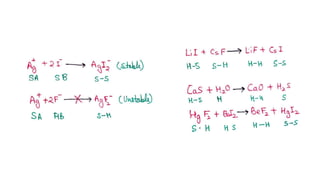 Ag⁺ + 2I⁻ → AgI₂⁻ (Stable)
SA SB S-S
Ag⁺ + 2F⁻ → AgF₂⁻ (Unstable)
SA HB S-H
LiI + CsF → LiF + CsI
H-S S-H H-H S-S
CaS + H₂O → CaO + H₂S
H-S H H-H S
Hg F₂ + BeI₂ → BeF₂ + HgI₂
S-H H S H-H S-S